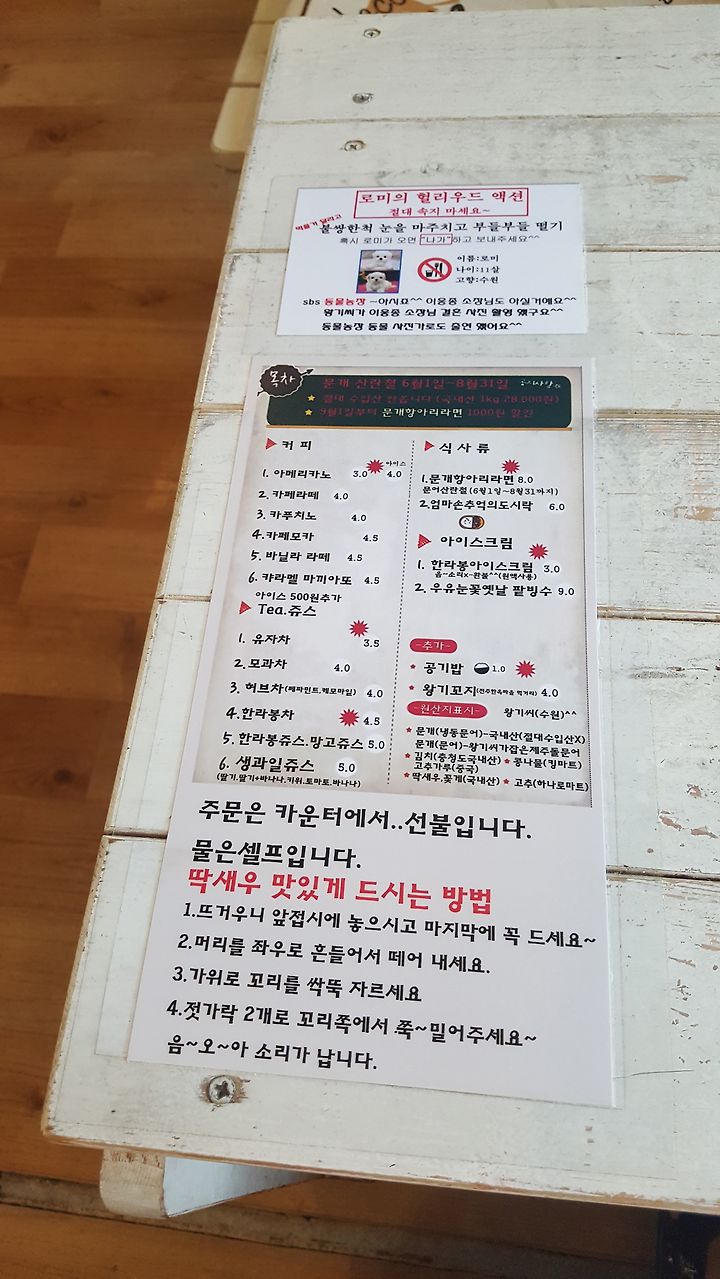 로미의 헐리우드 액션
절대 속지 마세요~
불쌍한척 눈을 마주치고 부들부들 떨기
혹시 로미가 오면 "나가"하고 보내주세요^^
이름:로미
나이:11살
고향:수원
sbs 동물농장 ~아시죠^^ 이웅종 소장님도 아실거예요^^
왕기씨가 이웅종 소장님 결혼 사진 촬영 했구요^^
동물농장 동물 사진가로도 출연 했어요^^
목차
문개 산란철 6월1일~8월31일
절대 수입산 안씁니다 (국내산 1kg 28,000원)
9월1일부터 문개항아리라면 1000원 할인
커피
아이스
1. 아메리카노 3.0 4.0
2. 카페라떼 4.0
3. 카푸치노 4.0
4. 카페모카 4.5
5. 바닐라 라떼 4.5
6. 카라멜 마끼아또 4.5
아이스 500원추가
Tea.쥬스
1. 유자차 3.5
2. 모과차 4.0
3. 허브차(페파민트.케모마일) 4.0
4. 한라봉차 4.5
5. 한라봉쥬스.망고쥬스 5.0
6. 생과일쥬스 5.0
(딸기.딸기+바나나.키위.토마토.바나나)
식사류
1.문개항아리라면 8.0
문어산란철(6월1일~8월31까지)
2.엄마손추억의도시락 6.0
아이스크림
1. 한라봉아이스크림 3.0
음~소리x-환불^^(원액사용)
2. 우유눈꽃옛날 팥빙수 9.0
-추가-
공기밥 1.0
왕기꼬지(전주한옥마을 먹거리) 4.0
-원산지표시- 왕기씨(수원)^^
문개(냉동문어)-국내산(절대수입산X)
문개(문어)-왕기씨가잡은제주돌문어
김치(충청도국내산) 콩나물(킹마트)
고추가루(중국)
딱새우,꽃게(국내산) 고추(하나로마트)
주문은 카운터에서..선불입니다.
물은셀프입니다.
딱새우 맛있게 드시는 방법
1.뜨거우니 앞접시에 놓으시고 마지막에 꼭 드세요~
2.머리를 좌우로 흔들어서 떼어 내세요.
3.가위로 꼬리를 싹뚝 자르세요
4.젓가락 2개로 꼬리쪽에서 쭉~밀어주세요~
음~오~아 소리가 납니다.